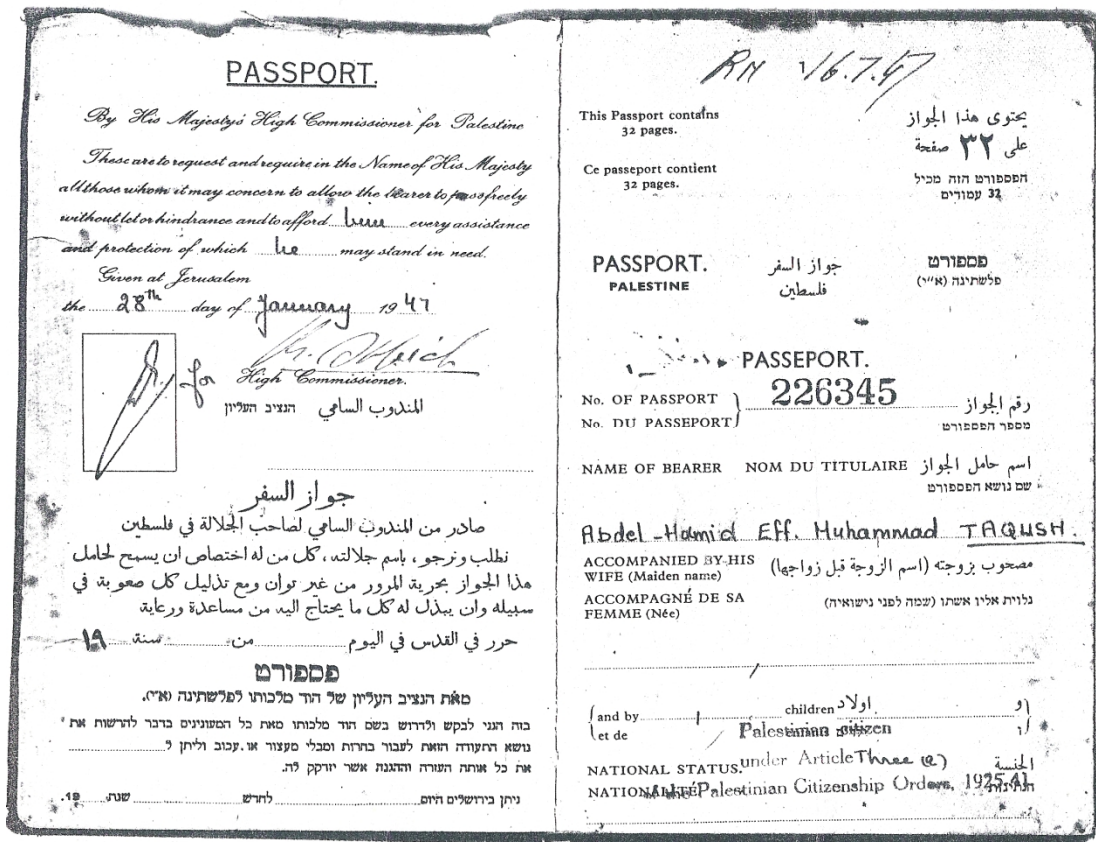 PASSPORT.
By His Majesty's High Commissioner for Palestine
These are to request and require in the Name of His Majesty
all those whom it may concern to allow the bearer to pass freely
without let or hindrance and to afford him every assistance
and protection of which he may stand in need.
Given at Jerusalem
the 28th day of January 1947
for
High Commissioner.
المندوب السامي הנציב העליון
جواز السفر
صادر من المندوب السامي لصاحب الجلالة في فلسطين
نطلب ونرجو، باسم جلالته، كل من له اختصاص ان يسمح لحامل
هذا الجواز بحرية المرور من غير توان ومع تذليل كل صعوبة في
سبيله وان يبذل له كل ما يحتاج اليه من مساعدة ورعاية
حرر في القدس في اليوم من سنة ١٩
פספורט
מאת הנציב העליון של הוד מלכותו לפלשתינה (א"י).
בזה הנני לבקש ולדרוש בשם הוד מלכותו מאת כל המעונינים בדבר להרשות את
נושא התעודה הזאת לעבור בחרות ומבלי מעצור או עכוב וליתן ל
את כל אותה העזרה וההגנה אשר יזדקק לה.
ניתן בירושלים היום לחדש שנת 19.
RM 16.7.47
This Passport contains
32 pages.
يحتوي هذا الجواز
على ٣٢ صفحة
Ce passeport contient
32 pages.
הפספורט הזה מכיל
32 עמודים
PASSPORT. جواز السفر פספורט
PALESTINE فلسطين פלשתינה (א"י)
PASSEPORT.
No. OF PASSPORT 226345 رقم الجواز
No. DU PASSEPORT מספר הפספורט
NAME OF BEARER NOM DU TITULAIRE اسم حامل الجواز
שם נושא הפספורט
Abdel-Hamid Eff. Muhammad TAQUSH.
ACCOMPANIED BY HIS
WIFE (Maiden name)
مصحوب بزوجته (اسم الزوجة قبل زواجها)
ACCOMPAGNÉ DE SA
FEMME (Née)
נלוית אליו אשתו (שמה לפני נישואיה)
and by children اولاد و
et de ו
Palestinian citizen
NATIONAL STATUS. under Article Three (2) الجنسية
NATIONALITÉ of the Palestinian Citizenship Orders, 1925-41 הנתינות